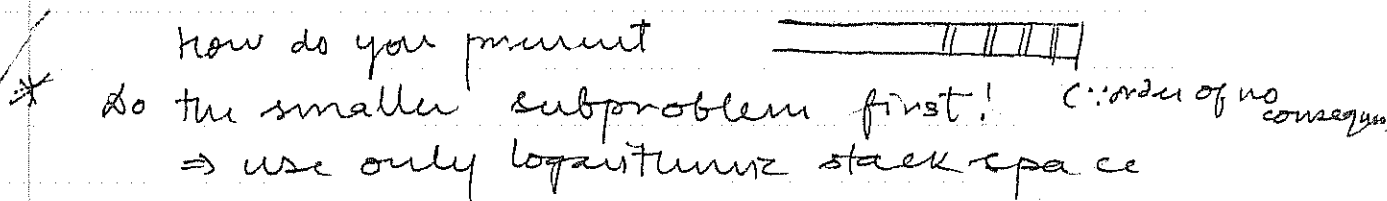 How do you prevent
* Do the smaller subproblem first! (∵ order of no consequ.
⇒ use only logarithmic stack space